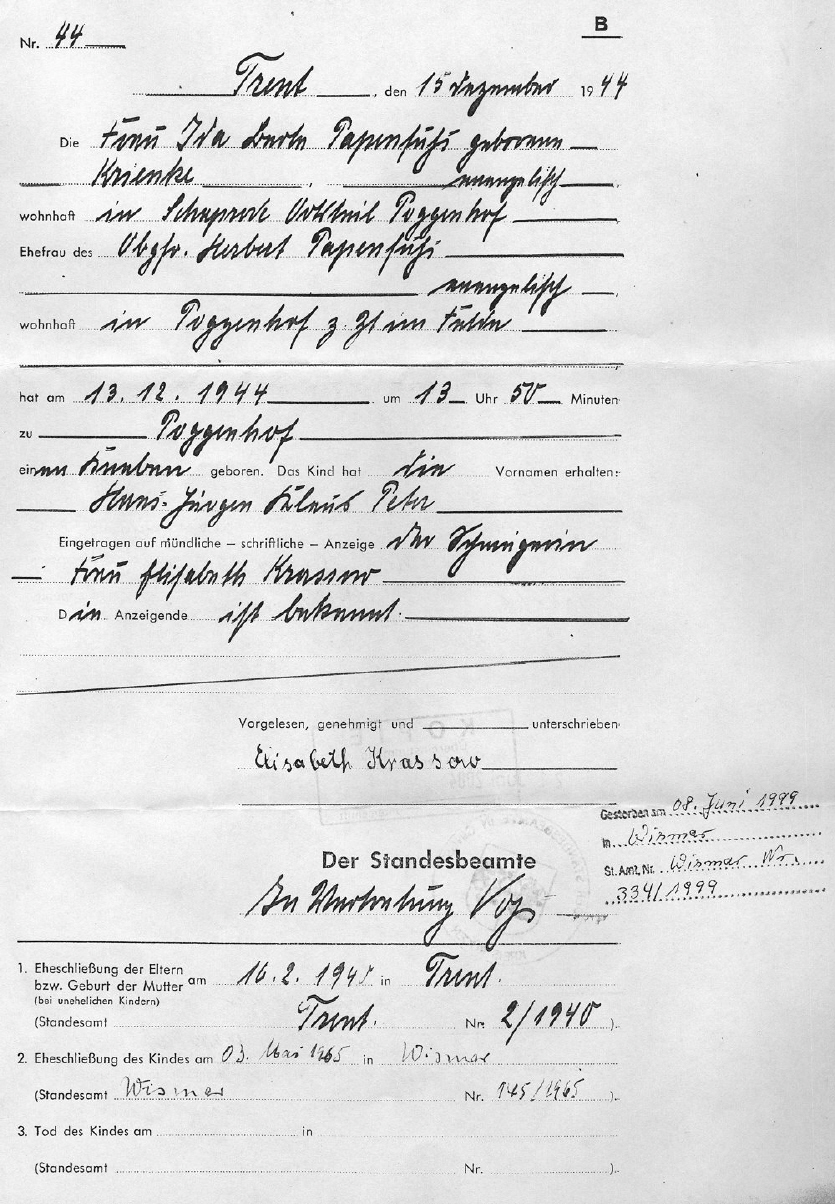 B
Nr. 44
Trent, den 15 Dezember 1944
Die Frau Ida Berta Papenfuhs geborene
Krienke, evangelisch
wohnhaft in Schaprode Ortsteil Poggenhof
Ehefrau des Obgfr. Herbert Papenfuhs
evangelisch
wohnhaft in Poggenhof z. Zt im Felde
hat am 13.12.1944 um 13 Uhr 50 Minuten
zu Poggenhof
einen Knaben geboren. Das Kind hat die Vornamen erhalten:
Hans-Jürgen Klaus Peter
Eingetragen auf mündliche – schriftliche – Anzeige der Schwägerin
Frau Elisabeth Krassow
Die Anzeigende ist bekannt.
Vorgelesen, genehmigt und unterschrieben
KOPIE
Elisabeth Krassow
Gestorben am 08. Juni 1999
in Wismar
St.Amt, Nr. Wismar Nr.
334/1999
Der Standesbeamte
In Vertretung
1. Eheschließung der Eltern
bzw. Geburt der Mutter am 16.2.1940 in Trent.
(bei unehelichen Kindern)
(Standesamt Trent. Nr. 2/1940).
2. Eheschließung des Kindes am 03. Mai 1965 in Wismar
(Standesamt Wismar Nr. 145/1965).
3. Tod des Kindes am in
(Standesamt Nr. ).